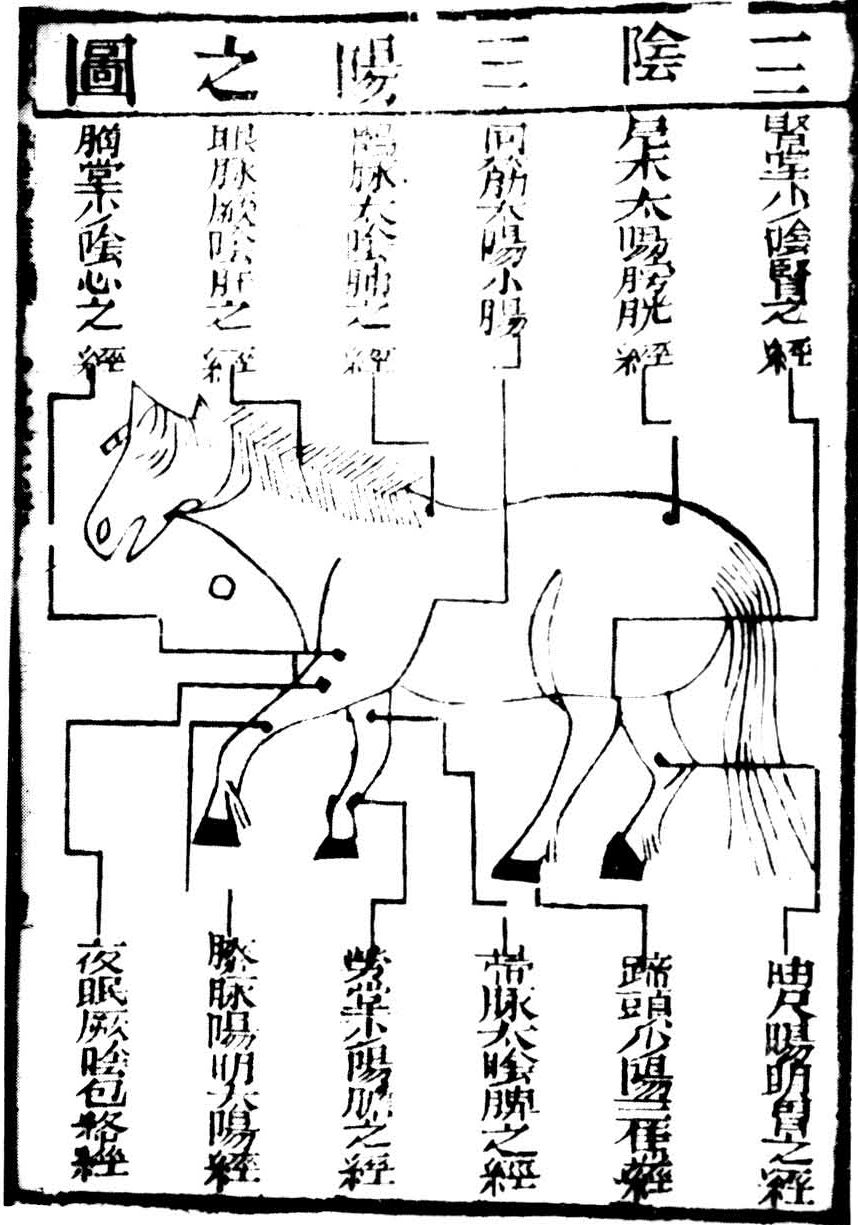 三陰三陽之圖
腎堂少陰腎之經
尾本太陽膀胱經
同筋太陽小腸
鶻脉太陰肺之經
眼脉厥陰肝之經
胸堂少陰心之經
曲尺陽明胃之經
蹄頭少陽三焦經
帶脉太陰脾之經
勞堂少陽膽之經
膝脉陽明大腸經
夜眼厥陰包絡經